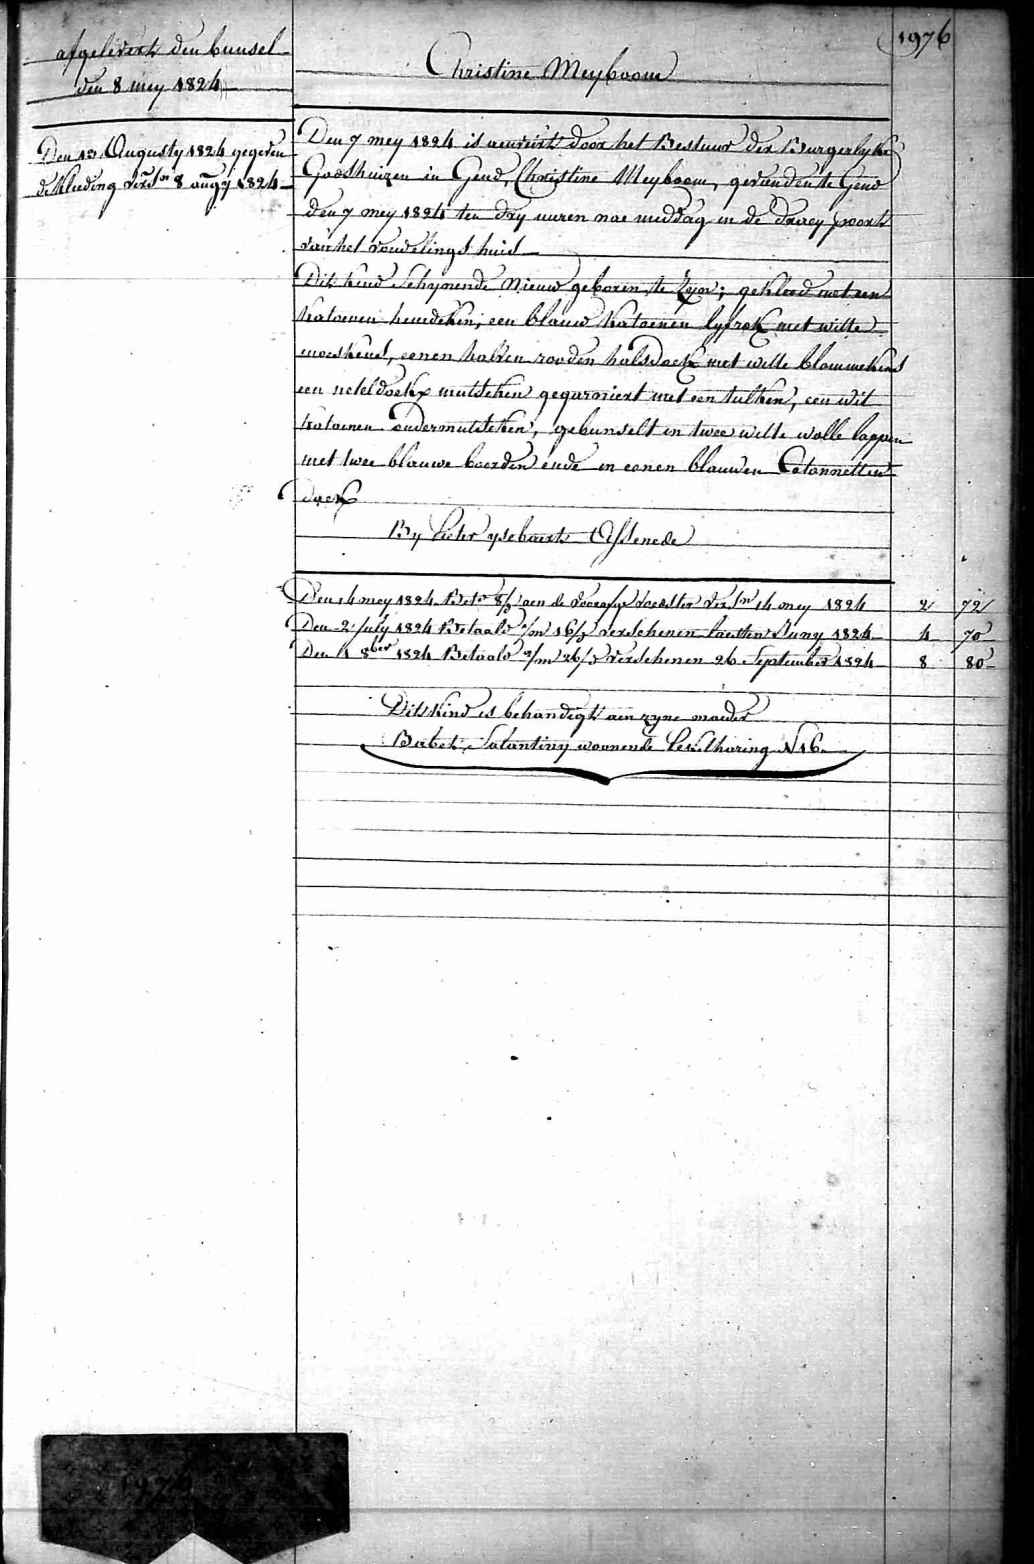 1976
afgelevert den bunsel
den 8 mey 1824
Christine Meyboom
Den 13 Augusty 1824 gegeven
de kleeding versn 8 augy 1824
Den 7 mey 1824 is aenveirt door het Bestuur der Burgerlyke
Godshuizen in Gend, Christine Meyboom, gevonden te Gend
den 7 mey 1824 ten dry uuren nae middag in de draey poort
van het vondelings huis
Dit kind schynende nieuw geboren te zyn; gekleed met een
katoenen hemdeken; een blauw katoenen lyfrok met witte
mouskens, eenen halven rooden halsdoek met witte blommekens
een neteldoekx mutsteken gegarniert met een tulken, een wit
katoenen ondermutsteken, gebunselt in twee witte wolle lappen
met twee blauwe boorden ende in eenen blauwen Catonnetten
doek
By Pieter ysebaert Assenede
Den 14 mey 1824 Bet. 8/ aen de voedster versn 14 mey 1824 2 72
Den 2 July 1824 Betaald /m 16/ verschenen laetsten Juny 1824 4 70
Den 4 8ber 1824 Betaald 2/m 26/ verschenen 26 September 1824 8 80
Dit kind is behandigt aen zyne moeder
Babet woonende N 16